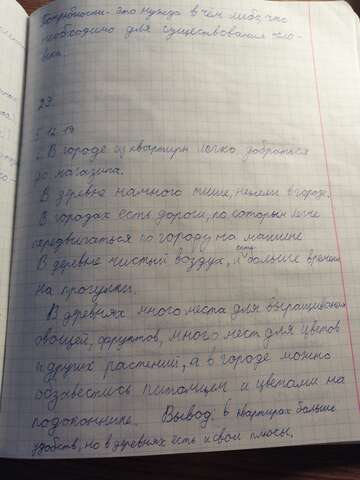 Потребности - это нужда в чём либо, что
необходимо для существования чело-
века.
23
5.12.19
В городе из квартиры легко добраться
до магазина.
В деревне намного тише, нежели в городе.
В городах есть дороги, по которым легче
передвигаться по городу на машине
В деревне чистый воздух, и есть больше времени
на прогулки.
В деревнях много места для выращивания
овощей, фруктов, много мест для цветов
и других растений, а в городе можно
обзавестись питомцем и цветами на
подоконнике. Вывод: в квартирах больше
удобств, но в деревнях есть и свои плюсы.